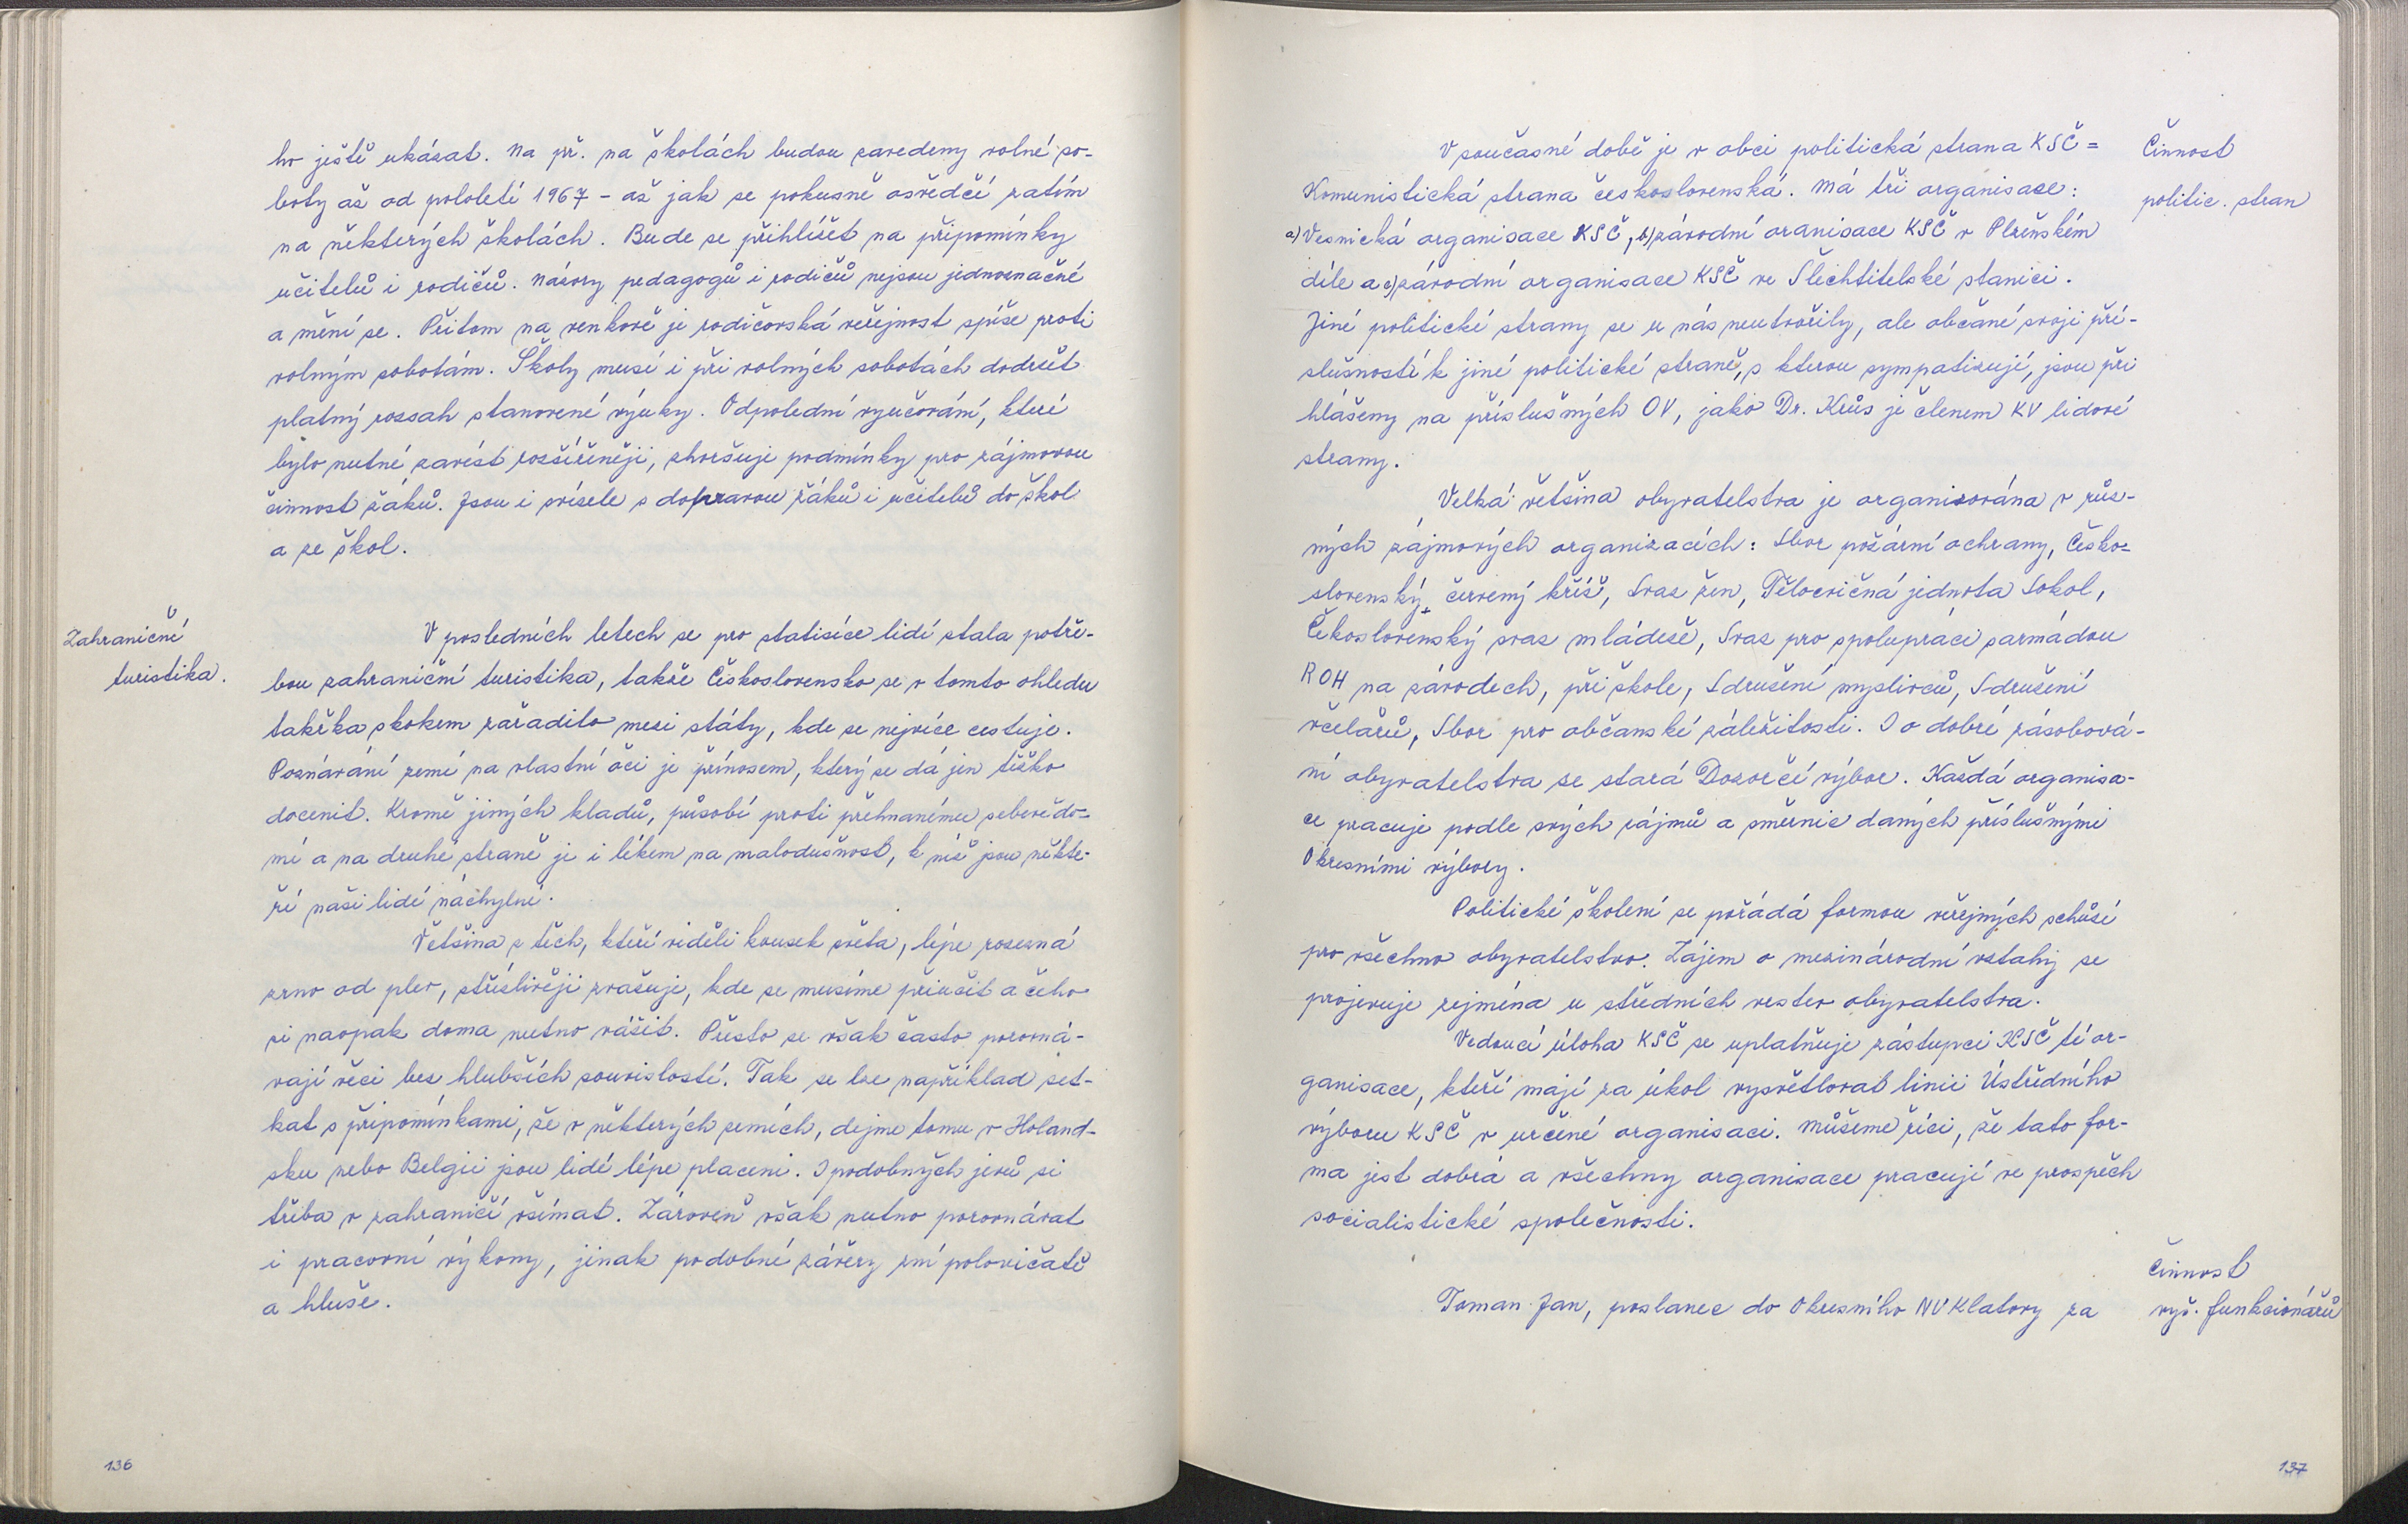 ho ještě ukázat. Na př. na školách budou zavedeny volné so-
boty až od pololetí 1967 - až jak se pokusně osvědčí zatím
na některých školách. Bude se přihlížet na připomínky
učitelů i rodičů. Názory pedagogů i rodičů nejsou jednoznačné
a mění se. Přitom na venkově je rodičovská veřejnost spíše proti
volným sobotám. Školy musí i při volných sobotách dodržet
platný rozsah stanovené výuky. Odpolední vyučování, které
bylo nutné zavést rozšířeněji, zhoršuje podmínky pro zájmovou
činnost žáků. Jsou i svízele s dopravou žáků i učitelů do škol
a ze škol.
Zahraniční
turistika.
V posledních letech se pro statisíce lidí stala potře-
bou zahraniční turistika, takže Československo se v tomto ohledu
takřka skokem zařadilo mezi státy, kde se nejvíce cestuje.
Poznávání zemí na vlastní oči je přínosem, který se dá jen těžko
docenit. Kromě jiných kladů, působí proti přehnanému sebevědo-
mí a na druhé straně je i lékem na malodušnost, k níž jsou někte-
ří naši lidé náchylní.
Většina z těch, kteří viděli kousek světa, lépe rozezná
zrno od plev, střízlivěji zvažuje, kde se musíme přiučit a čeho
si naopak doma nutno vážit. Přesto se však často porovná-
vají věci bez hlubších souvislostí. Tak se lze například set-
kat s připomínkami, že v některých zemích, dejme tomu v Holand-
sku nebo Belgii jsou lidé lépe placeni. I podobných jevů si
třeba v zahraničí všímat. Zároveň však nutno porovnávat
i pracovní výkony, jinak podobné závěry zní polovičatě
a hluše.
136
V současné době je v obci politická strana KSČ =
Komunistická strana československá. Má tři organisace:
a) Vesnická organisace KSČ, b) závodní oranisace KSČ v Plzeňském
díle a c) závodní organisace KSČ ve Šlechtitelské stanici.
Jiné politické strany se u nás neutvořily, ale občané svojí pří-
slušností k jiné politické straně, s kterou sympatizují, jsou při
hlášeny na příslušných OV, jako Dr. Krůs je členem KV lidové
strany.
Činnost
politic. stran
Velká většina obyvatelstva je organizována v růz-
ných zájmových organizacích: Sbor požární ochrany, Česko-
slovenský červený kříž, Svaz žen, Tělocvičná jednota Sokol,
Čekoslovenský svaz mládeže, Svaz pro spolupráci sarmádou
ROH na závodech, při škole, Sdružení myslivců, Sdružení
včelařů, Sbor pro občanské záležitosti. I o dobré zásobová-
ní obyvatelstva se stará Dozorčí výbor. Každá organisa-
ce pracuje podle svých zájmů a směrnic daných příslušnými
Okresními výbory.
Politické školení se pořádá formou veřejných schůzí
pro všechno obyvatelstvo. Zájem o mezinárodní vztahy se
projevuje zejména u středních vrstev obyvatelstva.
Vedoucí úloha KSČ se uplatňuje zástupci KSČ té or-
ganisace, kteří mají za úkol vysvětlovat linii Ústředního
výboru KSČ v určené organisaci. Můžeme říci, že tato for-
ma jest dobrá a všechny organisace pracují ve prospěch
socialistické společnosti.
Činnost
vyš. funkcionářů
Toman Jan, poslanec do Okresního NV Klatovy za
137